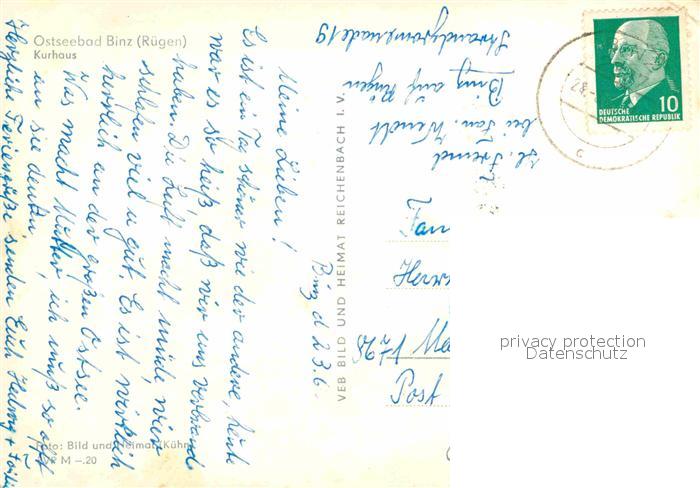 Ostseebad Binz (Rügen)
Kurhaus
Binz d 23.6.
Meine Lieben!
Es ist ein Tag schöner wie der andere, heute
war es so heiß daß wir uns verbrannt
haben. Die Luft macht müde, wir
schlafen viel u gut. Es ist wirklich
herrlich an der großen Ostsee.
Was macht Mutter, ich muß so oft
an sie denken
Herzliche Feriengrüße senden Euch
Foto: Bild und Heimat (Kühn)
M -.20
VEB BILD UND HEIMAT REICHENBACH I. V.
bei Fam. Wendt
Binz auf Rügen
Strandpromenade 19
DEUTSCHE
DEMOKRATISCHE REPUBLIK
10
28.
Fam
Post
privacy protection
Datenschutz